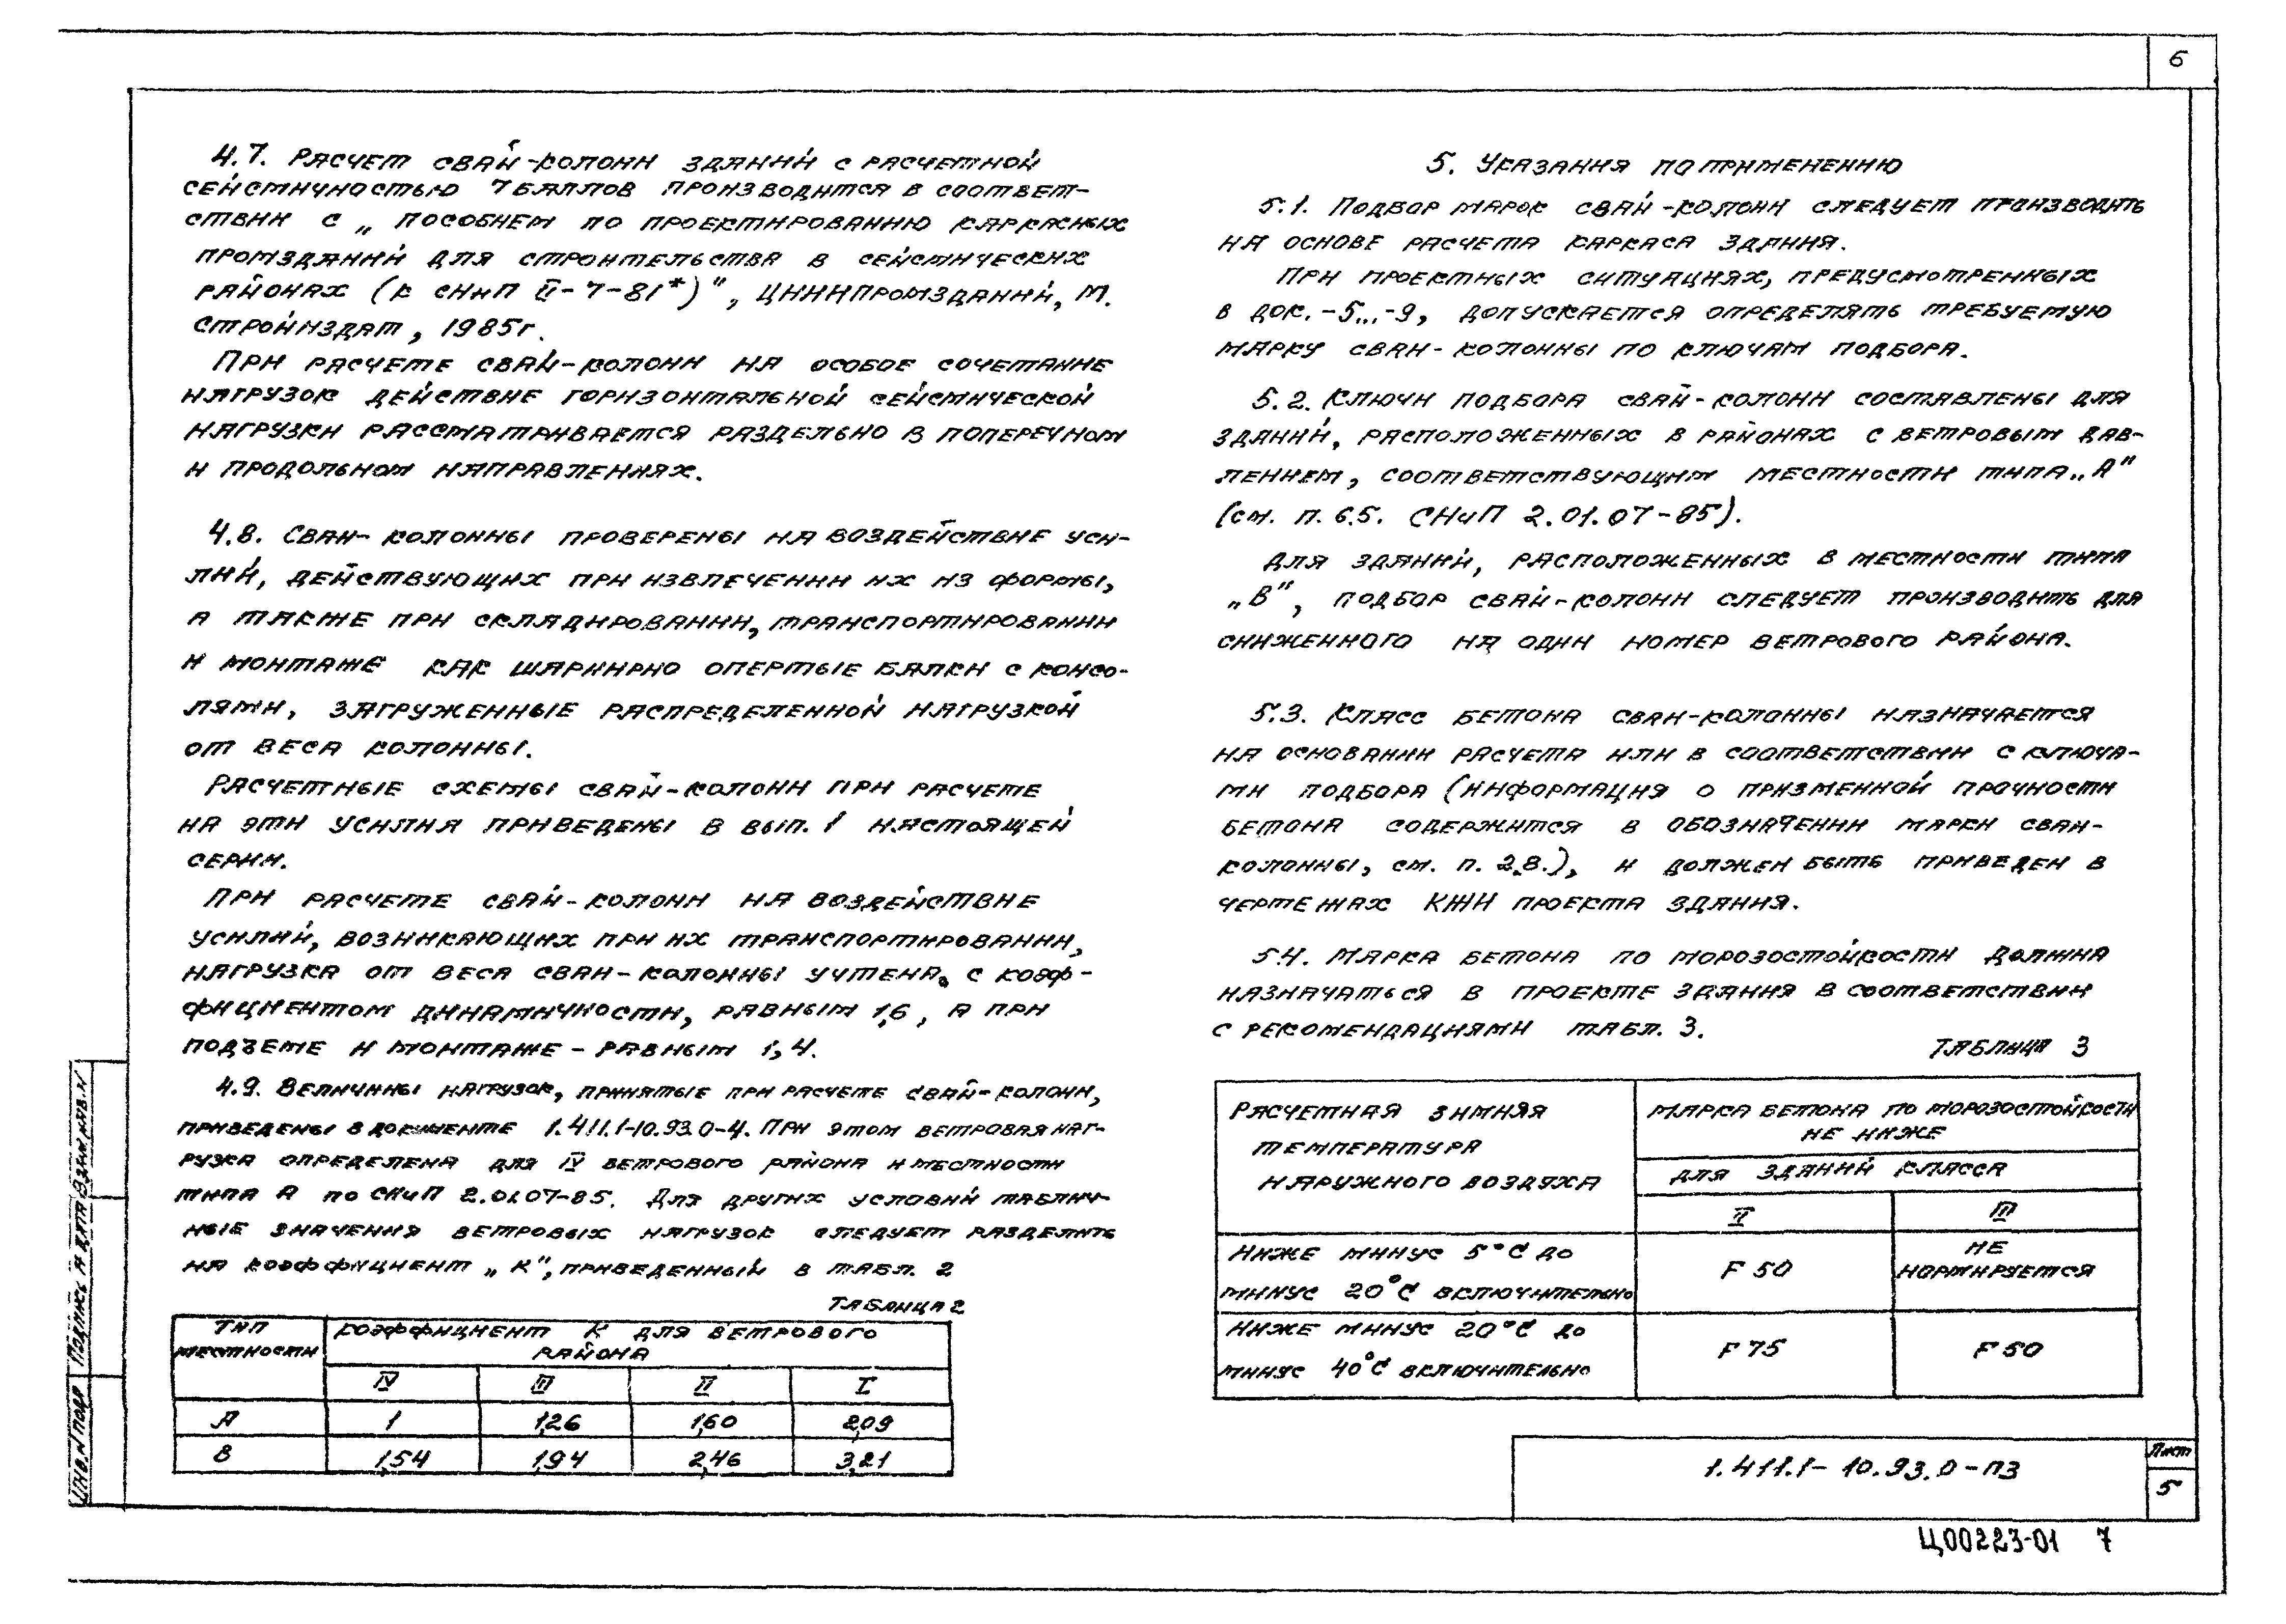 6
4.7. Расчет свай-колонн зданий с расчетной
сейсмичностью 7 баллов производится в соответ-
ствии с „пособием по проектированию каркасных
промзданий для строительства в сейсмических
районах (к СНиП II-7-81*)", ЦНИИпромзданий, М.
Стройиздат, 1985г.
При расчете свай-колонн на особое сочетание
нагрузок действие горизонтальной сейсмической
нагрузки рассматривается раздельно в поперечном
и продольном направлениях.
4.8. Сваи-колонны проверены на воздействие уси-
лий, действующих при извлечении их из формы,
а также при складировании, транспортировании
и монтаже как шарнирно опертые балки с консо-
лями, загруженные распределенной нагрузкой
от веса колонны.
Расчетные схемы свай-колонн при расчете
на эти усилия приведены в вып. 1 настоящей
серии.
При расчете свай-колонн на воздействие
усилий, возникающих при их транспортировании,
нагрузка от веса сваи-колонны учтена с коэф-
фициентом динамичности, равным 1,6, а при
подъеме и монтаже - равным 1,4.
4.9. Величины нагрузок, принятые при расчете свай-колонн,
приведены в документе 1.411.1-10.93.0-4. При этом ветровая наг-
рузка определена для IV ветрового района и местности
типа А по СНиП 2.01.07-85. Для других условий таблич-
ные значения ветровых нагрузок следует разделить
на коэффициент „К", приведенный в табл. 2
Таблица 2
Тип местности
Коэффициент К для ветрового
района
IV III II I
А 1 1,26 1,60 2,09
В 1,54 1,94 2,46 3,21
5. Указания по применению
5.1. Подбор марок свай-колонн следует производить
на основе расчета каркаса здания.
При проектных ситуациях, предусмотренных
в док. -5...-9, допускается определять требуемую
марку сваи-колонны по ключам подбора.
5.2. Ключи подбора свай-колонн составлены для
зданий, расположенных в районах с ветровым дав-
лением, соответствующим местности типа „А"
(см. п. 6.5. СНиП 2.01.07-85).
Для зданий, расположенных в местности типа
„В", подбор свай-колонн следует производить для
сниженного на один номер ветрового района.
5.3. Класс бетона сваи-колонны назначается
на основании расчета или в соответствии с ключа-
ми подбора (информация о призменной прочности
бетона содержится в обозначении марки сваи-
колонны, см. п. 2.8.), и должен быть приведен в
чертежах КЖИ проекта здания.
5.4. Марка бетона по морозостойкости должна
назначаться в проекте здания в соответствии
с рекомендациями табл. 3.
Таблица 3
Расчетная зимняя
температура
наружного воздуха
Марка бетона по морозостойкости
не ниже
для зданий класса
II III
Ниже минус 5°С до
минус 20°С включительно
F 50
не
нормируется
Ниже минус 20°С до
минус 40°С включительно
F 75
F 50
Инв. N подл Подпись и дата Взам.инв.N
1.411.1-10.93.0-ПЗ
Лист
5
Ц00223-01 7